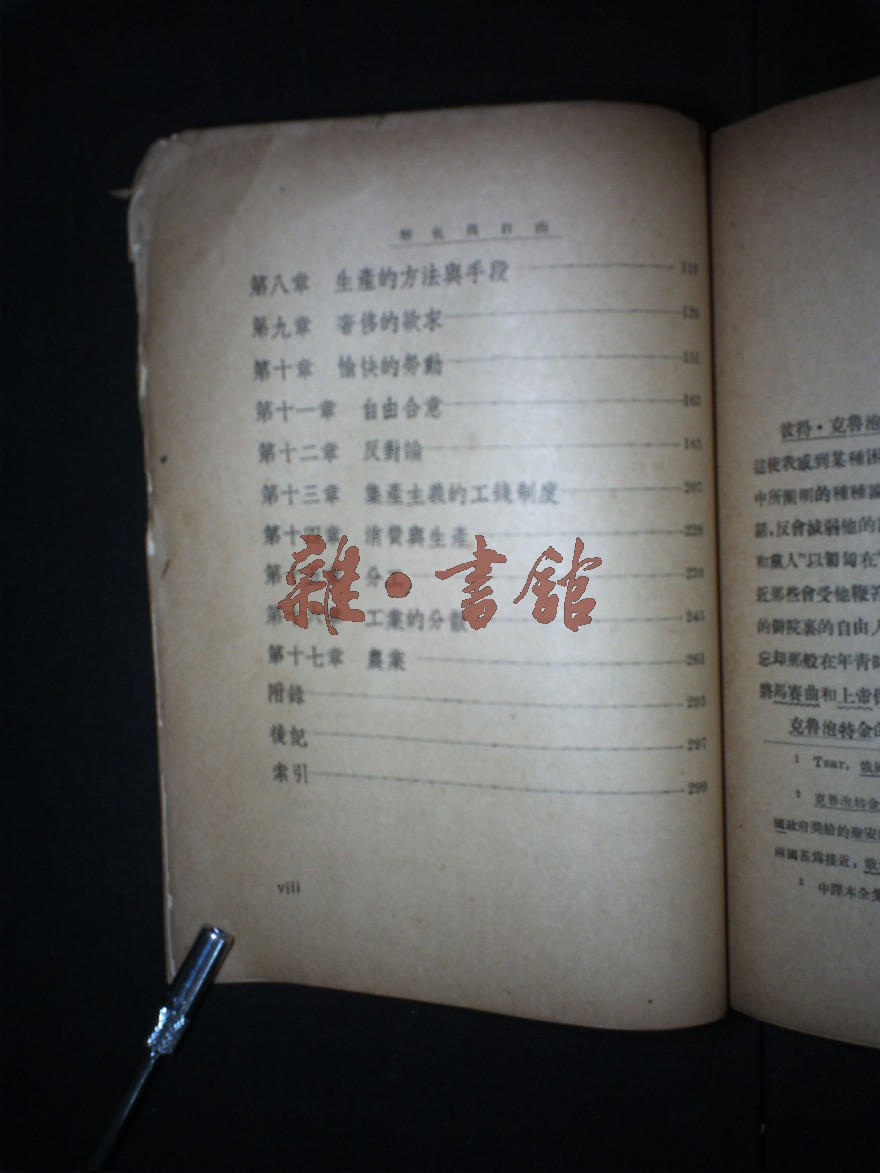 麵包與自由
第八章 生產的方法與手段 118
第九章 奢侈的欲求 128
第十章 愉快的勞動 151
第十一章 自由合意 163
第十二章 反對論 185
第十三章 集產主義的工錢制度 207
第十四章 消費與生產 228
第十五章 分工 238
第十六章 工業的分散 245
第十七章 農業 261
附錄 293
後記 297
索引 299
viii
雜·書館
彼得·克魯泡
這使我感到某種困
中所闡明的種種論
話,反會減弱他的
和黨人”以匍匐在“
近那些會受他鞭笞
的御院裏的自由人
忘却那般在年青時
將馬賽曲和上帝
克魯泡特金的
1 Tsar,俄
2 克魯泡特金
國政府獎給的聖安
兩國甚爲接近,俄
3 中譯本全集